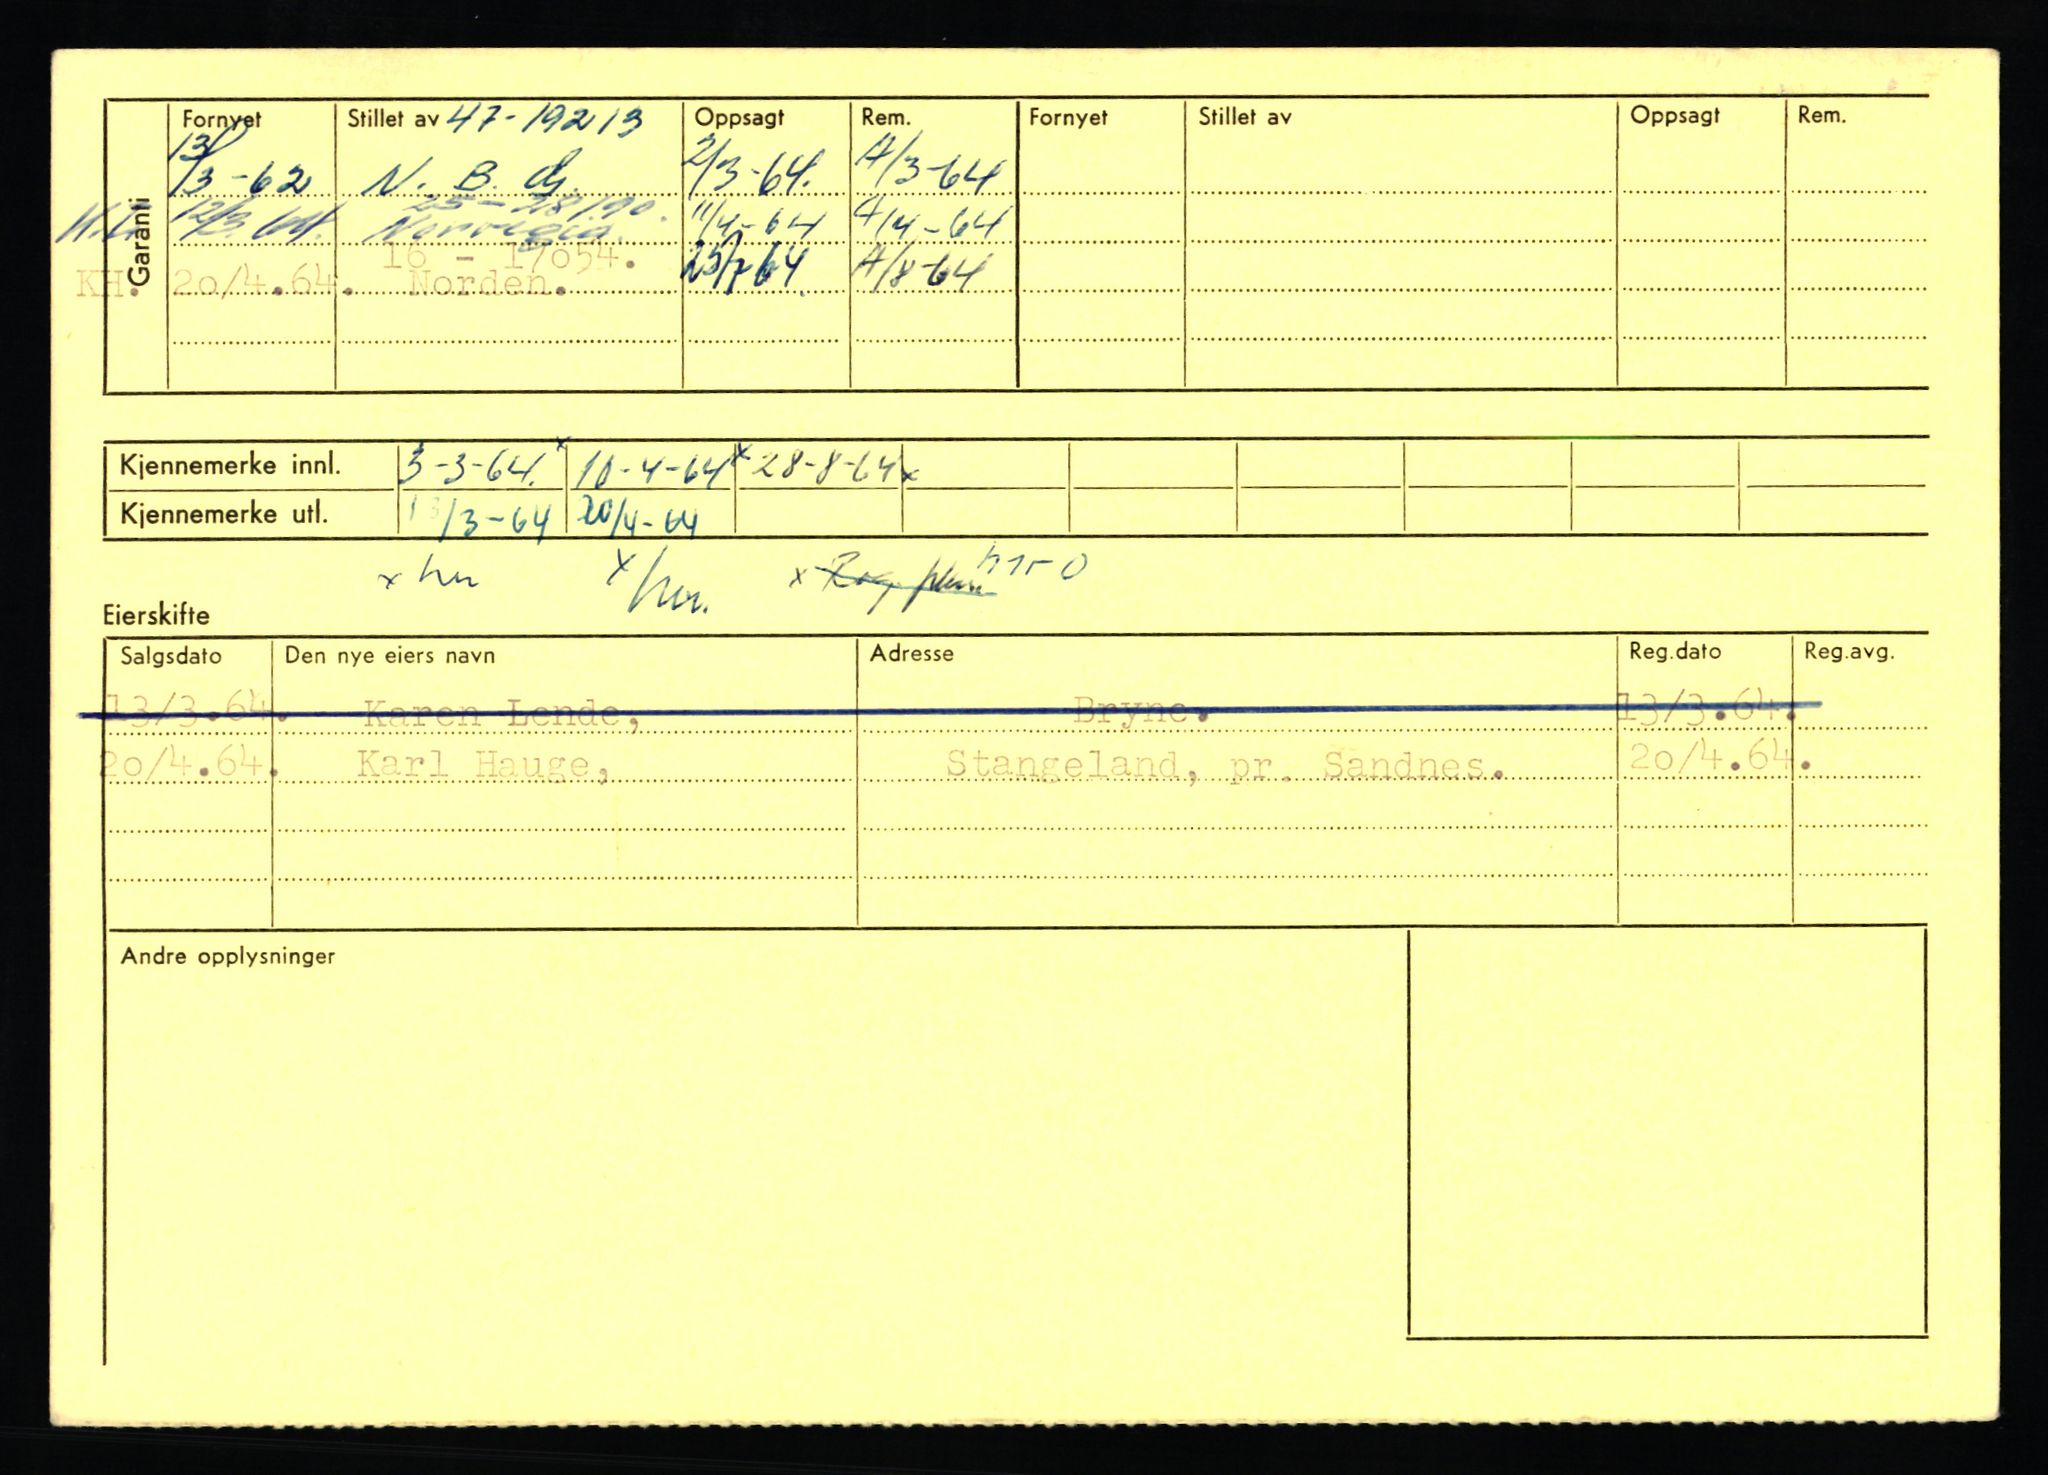 Garanti
Fornyet Stillet av 47-19213 Oppsagt Rem. Fornyet Stillet av Oppsagt Rem.
13/3-62 N. B. G. 2/3-64. A/3-64
12/3.64. Norvegia. 11/4-64 A/4-64
16 - 17054.
KH. 20/4.64. Norden. 23/7 64 A/8-64
Kjennemerke innl. 3-3-64. x 10-4-64 x 28-8-64 x
Kjennemerke utl. 13/3-64 20/4-64
x her x her. x
Eierskifte
Salgsdato Den nye eiers navn Adresse Reg.dato Reg.avg.
13/3.64. Karen Lende, Bryne. 13/3.64.
20/4.64. Karl Hauge, Stangeland, pr. Sandnes. 20/4.64.
Andre opplysninger